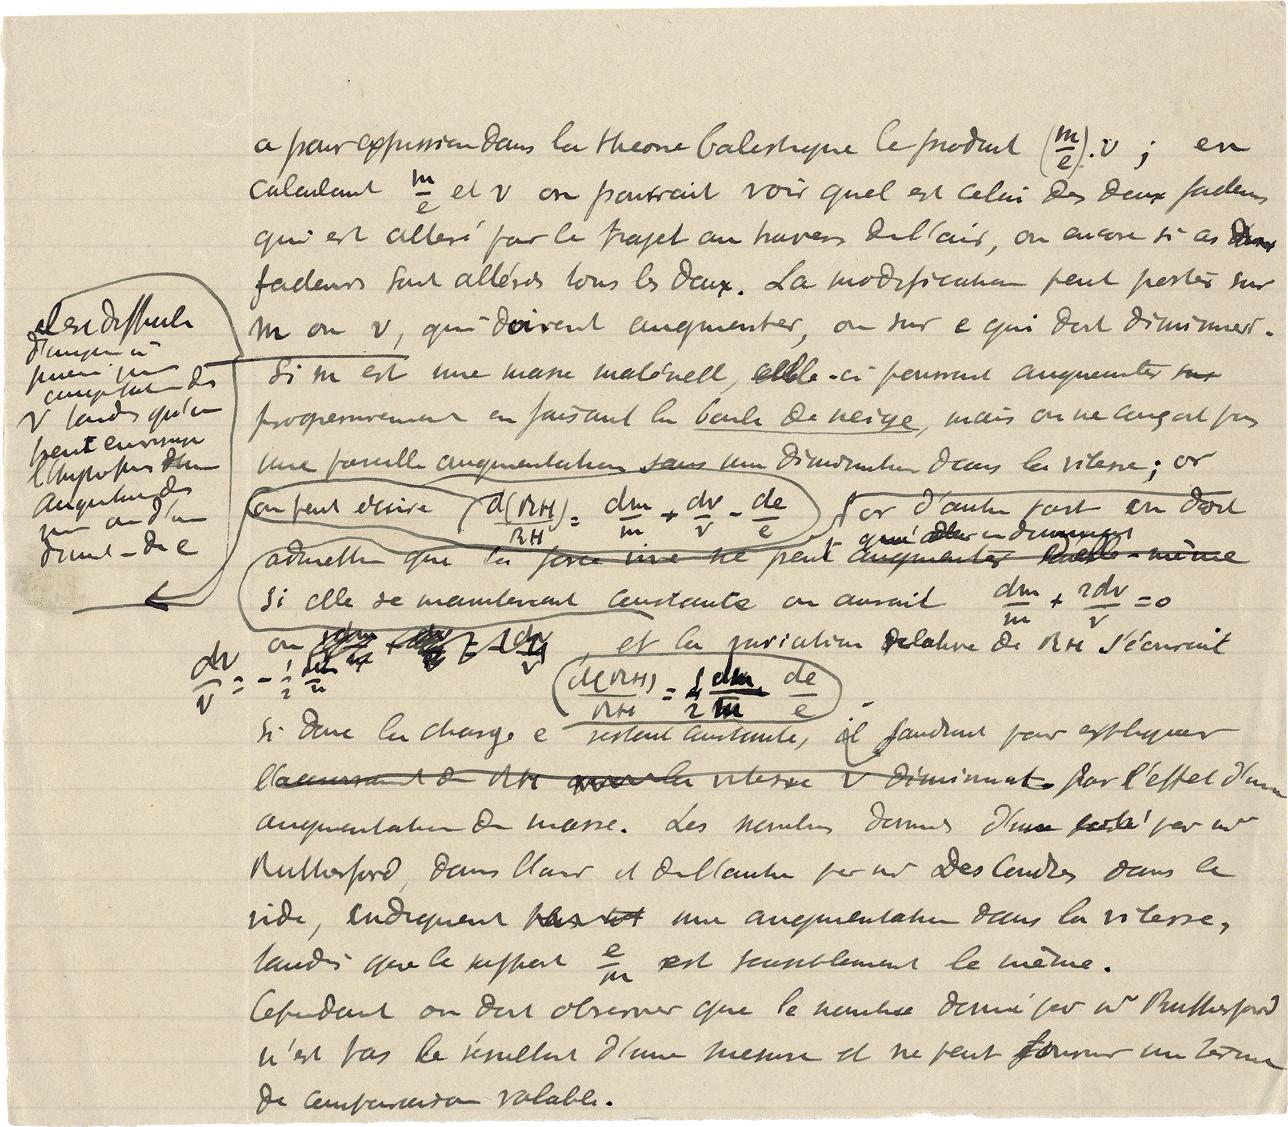 a pour expression dans la theorie balistique le produit (m/e).v ; en
calculant m/e et v on pourrait voir quel est celui des deux facteurs
qui est altéré par le trajet au travers de l'air, ou encore si ces deux
facteurs sont altérés tous les deux. La modification peut porter sur
m ou v, qui doivent augmenter, ou sur e qui doit diminuer.
Il est difficile
d'imaginer
v tandis qu'on
peut envisager
l'hypothèse d'une
augmentation de
m ou d'une
dimin - de e
Si m est une masse matérielle, elle-ci pourrait augmenter sur
progressivement en faisant la boule de neige, mais on ne conçoit pas
une pareille augmentation sans une diminution dans la vitesse ; or
on peut écrire d(RH)/RH = dm/m + dv/v - de/e or d'autre part on doit
qu'en diminuant
admettre que la force vive ne peut augmenter d'elle-même
Si elle se maintenait constante on aurait dm/m + 2dv/v = 0
ou dv/v = - 1/2 dm/m , et la variation relative de RH s'écrirait
d(RH)/RH = 1/2 dm/m de/e
Si donc la charge e restant constante, il faudrait pour expliquer
l'accroissement de RH que la vitesse v diminuat par l'effet d'une
augmentation de masse. Les nombres donnés d'une part par Mr
Rutherford, dans l'air et de l'autre par Mr Des Coudres dans le
vide, indiquent une augmentation dans la vitesse,
tandis que le rapport e/m est sensiblement le même.
Cependant on doit observer que le nombre donné par Mr Rutherford
n'est pas le résultat d'une mesure et ne peut fournir un terme
de comparaison valable.